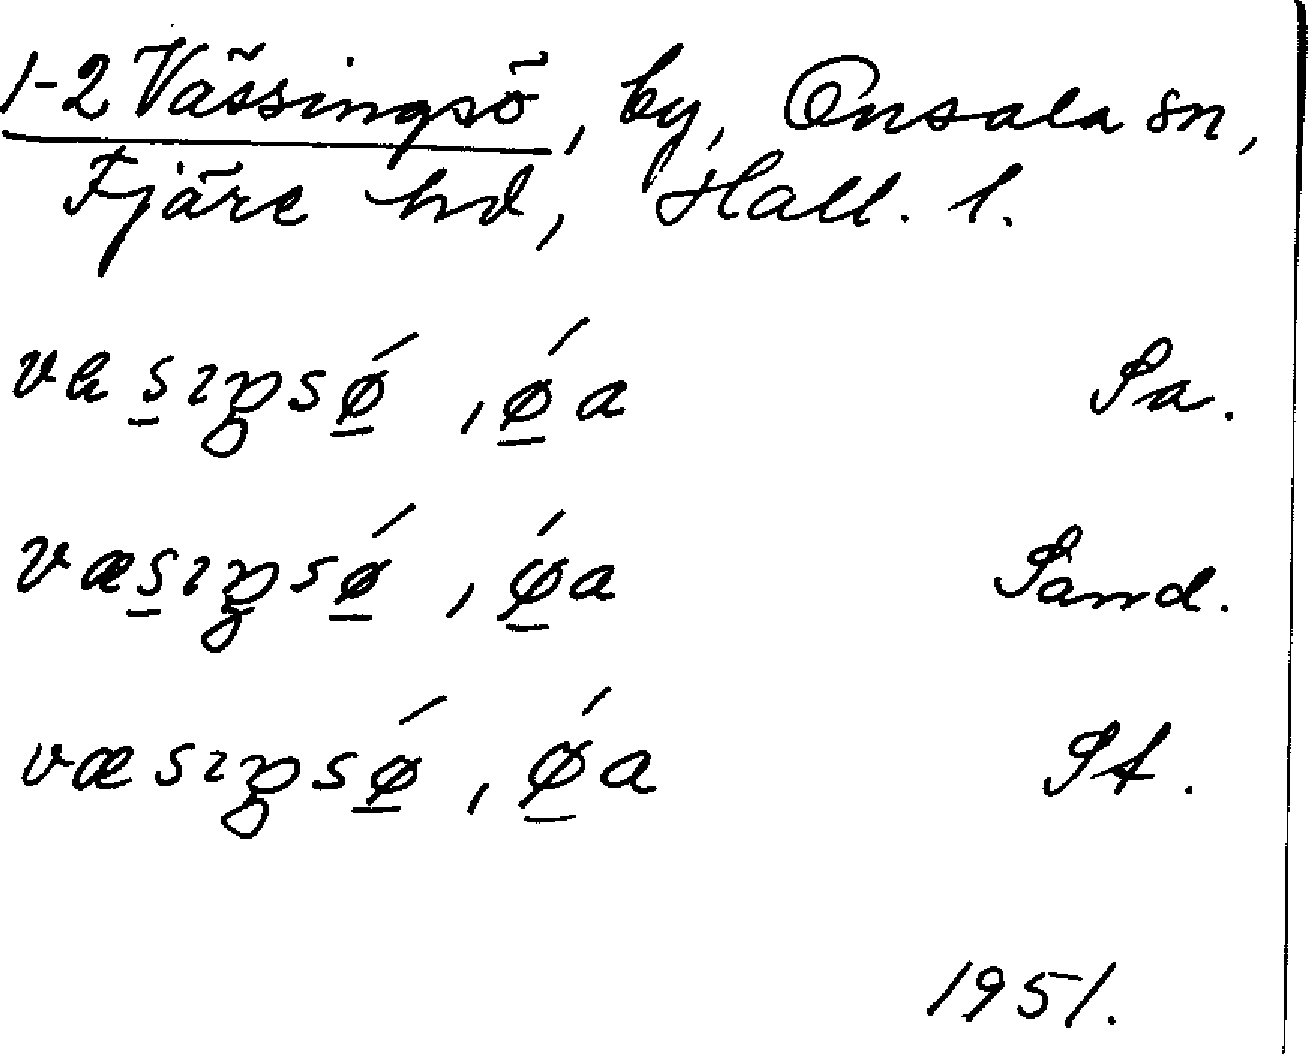 1-2 Vässingsö, by, Onsala sn,
Fjäre hd, Hall. l.
væs̲ıŋsǿ̲, ǿ̲a Pa.
væs̲ıŋsǿ̲, ǿ̲a Sand.
væsıŋsǿ̲, ǿ̲a St.
1951.